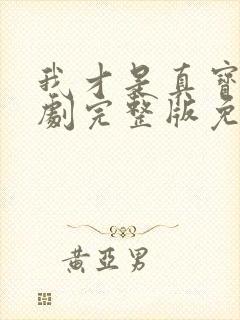 我才是真寶
劇完整版免
黃亞男